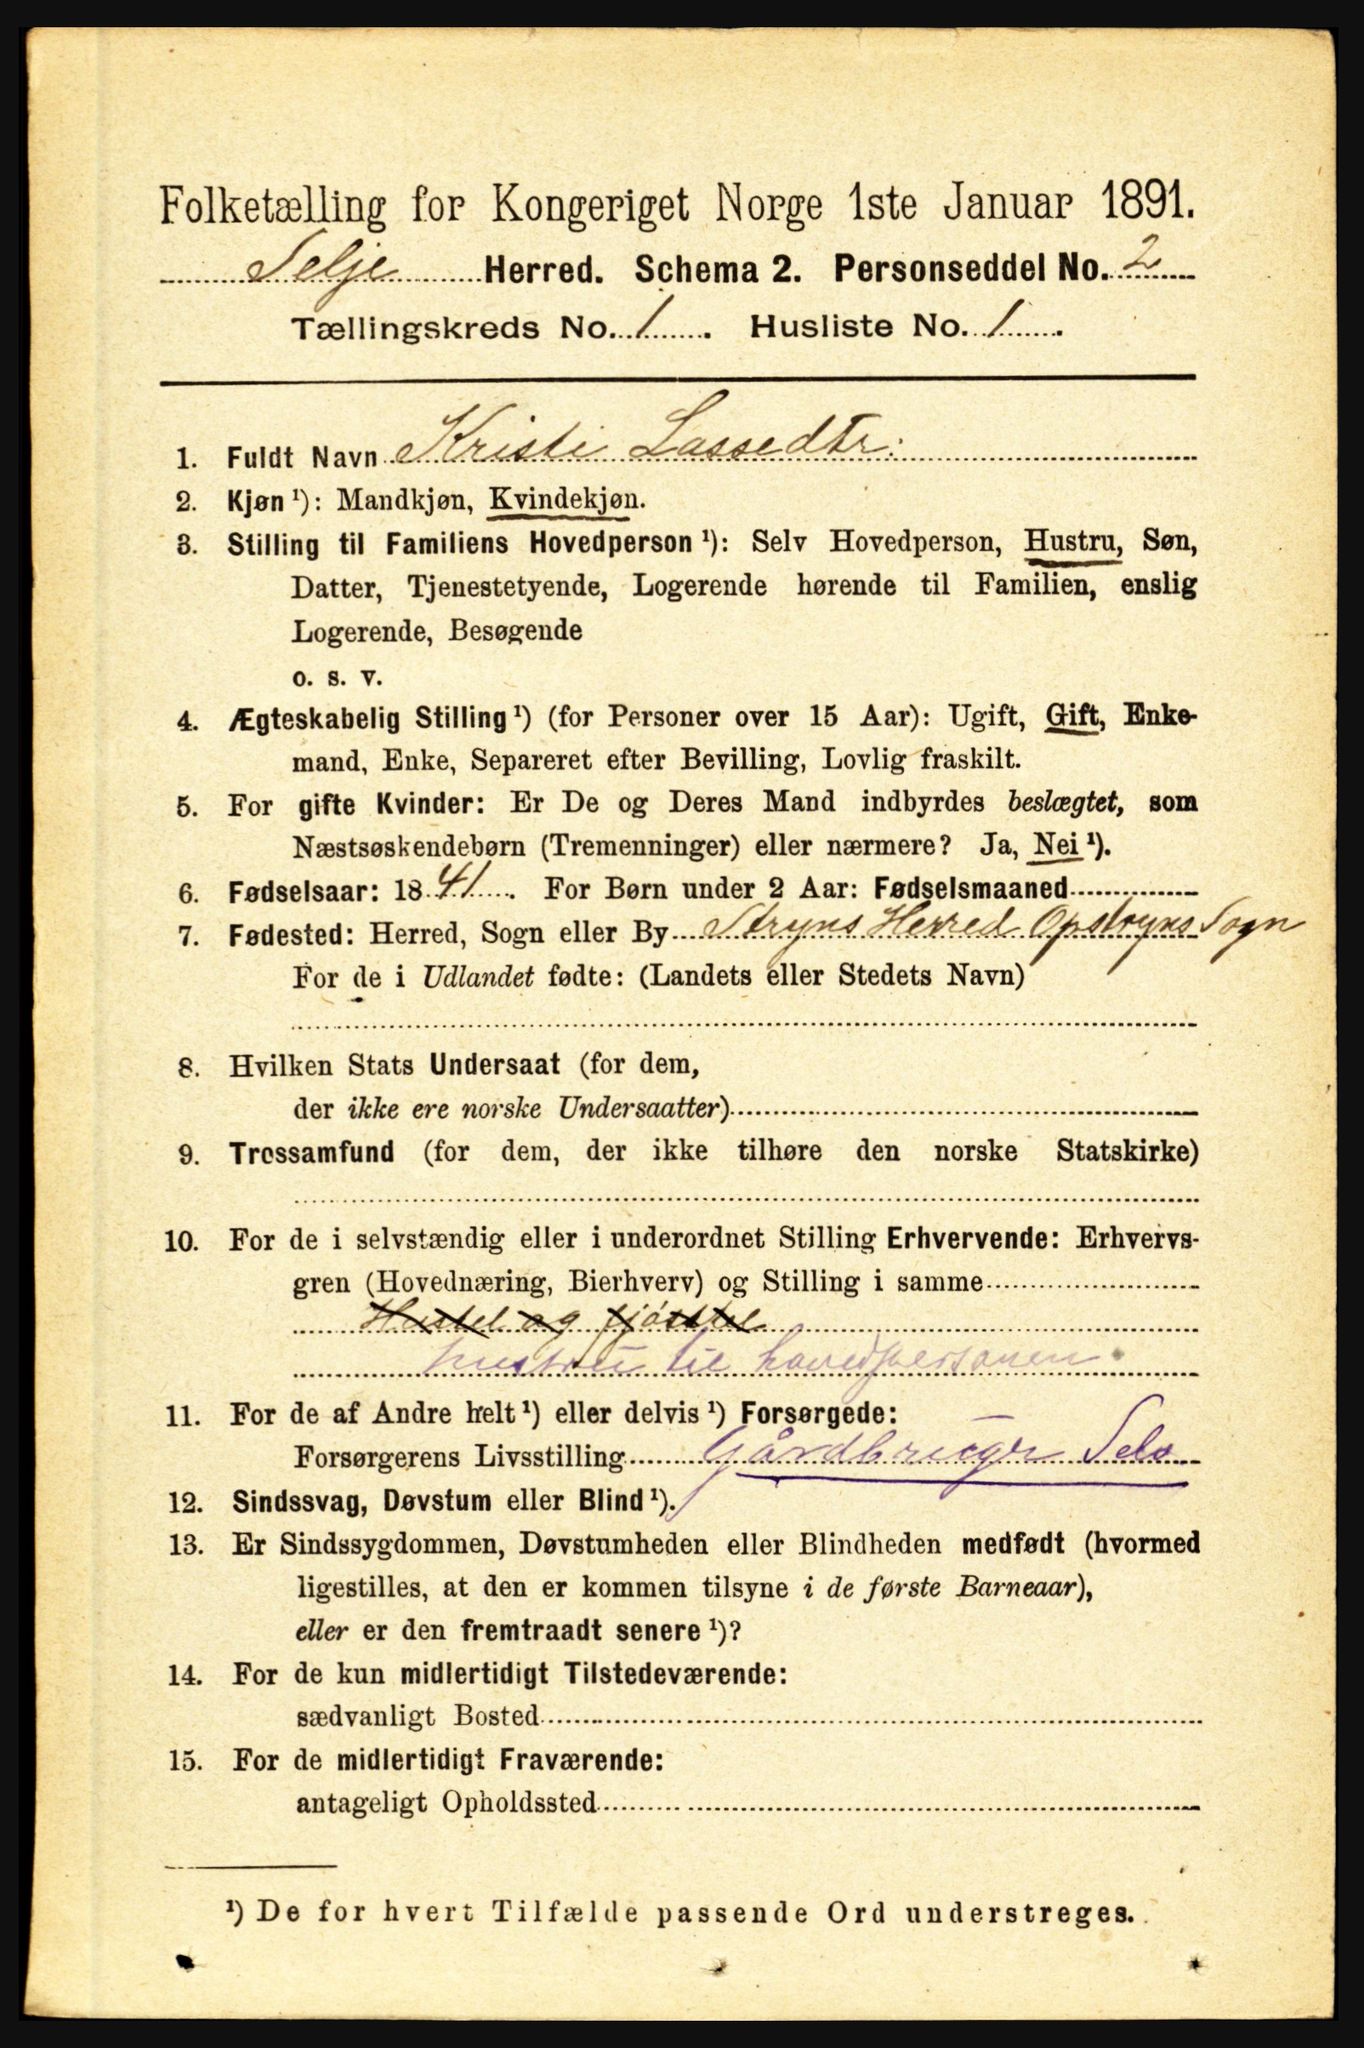 Folketælling for Kongeriget Norge 1ste Januar 1891.
Selje Herred. Schema 2. Personseddel No. 2
Tællingskreds No. 1. Husliste No. 1.
1. Fuldt Navn Kristi Lassedtr:
2. Kjøn ¹): Mandkjøn, Kvindekjøn.
3. Stilling til Familiens Hovedperson ¹): Selv Hovedperson, Hustru, Søn,
Datter, Tjenestetyende, Logerende hørende til Familien, enslig
Logerende, Besøgende
o. s. v.
4. Ægteskabelig Stilling ¹) (for Personer over 15 Aar): Ugift, Gift, Enke-
mand, Enke, Separeret efter Bevilling, Lovlig fraskilt.
5. For gifte Kvinder: Er De og Deres Mand indbyrdes beslægtet, som
Næstsøskendebørn (Tremenninger) eller nærmere? Ja, Nei ¹).
6. Fødselsaar: 1841. For Børn under 2 Aar: Fødselsmaaned
7. Fødested: Herred, Sogn eller By Stryns Herred Opstryns Sogn
For de i Udlandet fødte: (Landets eller Stedets Navn)
8. Hvilken Stats Undersaat (for dem,
der ikke ere norske Undersaatter)
9. Trossamfund (for dem, der ikke tilhøre den norske Statskirke)
10. For de i selvstændig eller i underordnet Stilling Erhvervende: Erhvervs-
gren (Hovednæring, Bierhverv) og Stilling i samme
Hustel og fjøsstel
hustru til hovedpersonen
11. For de af Andre helt ¹) eller delvis ¹) Forsørgede:
Forsørgerens Livsstilling Gårdbruger Selv
12. Sindssvag, Døvstum eller Blind ¹).
13. Er Sindssygdommen, Døvstumheden eller Blindheden medfødt (hvormed
ligestilles, at den er kommen tilsyne i de første Barneaar),
eller er den fremtraadt senere ¹)?
14. For de kun midlertidigt Tilstedeværende:
sædvanligt Bosted
15. For de midlertidigt Fraværende:
antageligt Opholdssted
¹) De for hvert Tilfælde passende Ord understreges.